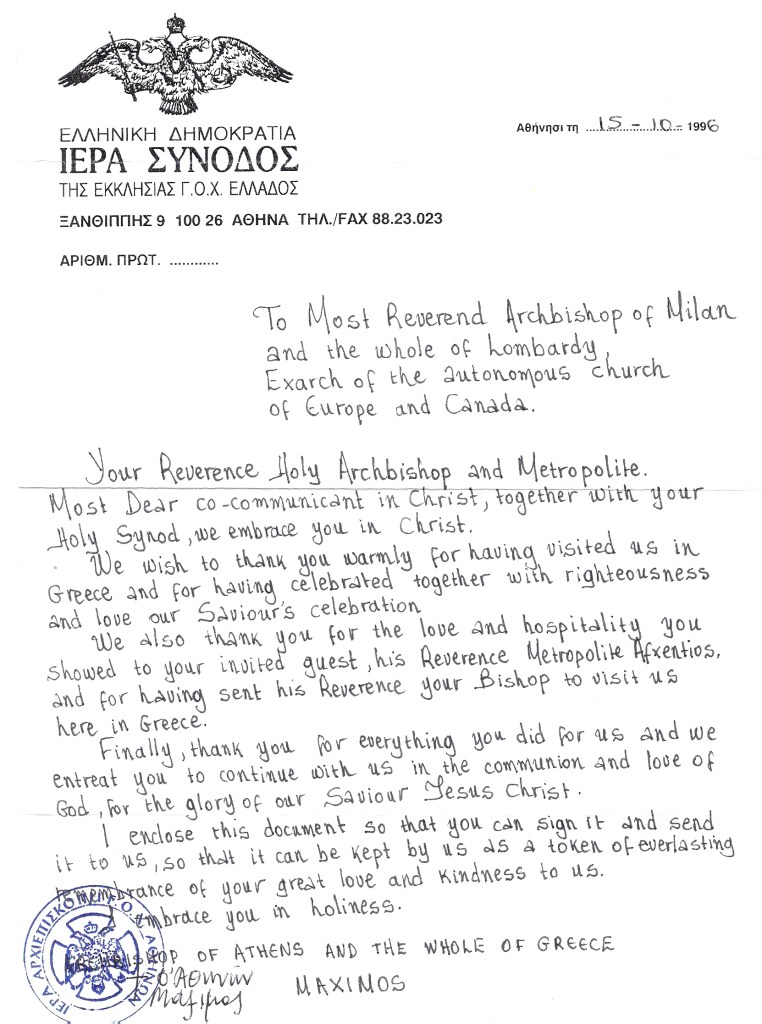 ΕΛΛΗΝΙΚΗ ΔΗΜΟΚΡΑΤΙΑ
ΙΕΡΑ ΣΥΝΟΔΟΣ
ΤΗΣ ΕΚΚΛΗΣΙΑΣ Γ.Ο.Χ. ΕΛΛΑΔΟΣ
ΞΑΝΘΙΠΠΗΣ 9 100 26 ΑΘΗΝΑ ΤΗΛ./FAX 88.23.023
ΑΡΙΘΜ. ΠΡΩΤ. ............
Αθήνησι τη ...15-10-.... 1996
To Most Reverend Archbishop of Milan
and the whole of Lombardy,
Exarch of the autonomous church
of Europe and Canada.
Your Reverence Holy Archbishop and Metropolite.
Most Dear co-communicant in Christ, together with your
Holy Synod, we embrace you in Christ.
We wish to thank you warmly for having visited us in
Greece and for having celebrated together with righteousness
and love our Saviour's celebration
We also thank you for the love and hospitality you
showed to your invited guest, his Reverence Metropolite Afxentios,
and for having sent his Reverence your Bishop to visit us
here in Greece.
Finally, thank you for everything you did for us and we
entreat you to continue with us in the communion and love of
God, for the glory of our Saviour Jesus Christ.
I enclose this document so that you can sign it and send
it to us, so that it can be kept by us as a token of everlasting
remembrance of your great love and kindness to us.
I embrace you in holiness.
ARCHBISHOP OF ATHENS AND THE WHOLE OF GREECE
MAXIMOS
ὁ Ἀθηνῶν
Μάξιμος
ΙΕΡΑ ΑΡΧΙΕΠΙΣΚΟΠΗ Γ.Ο.Χ. ΑΘΗΝΩΝ